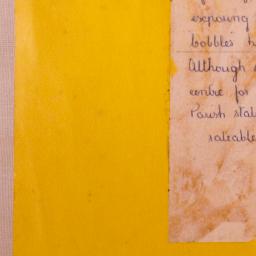 expouning
bobbles h
Although
centre for
Parish stat
rateable